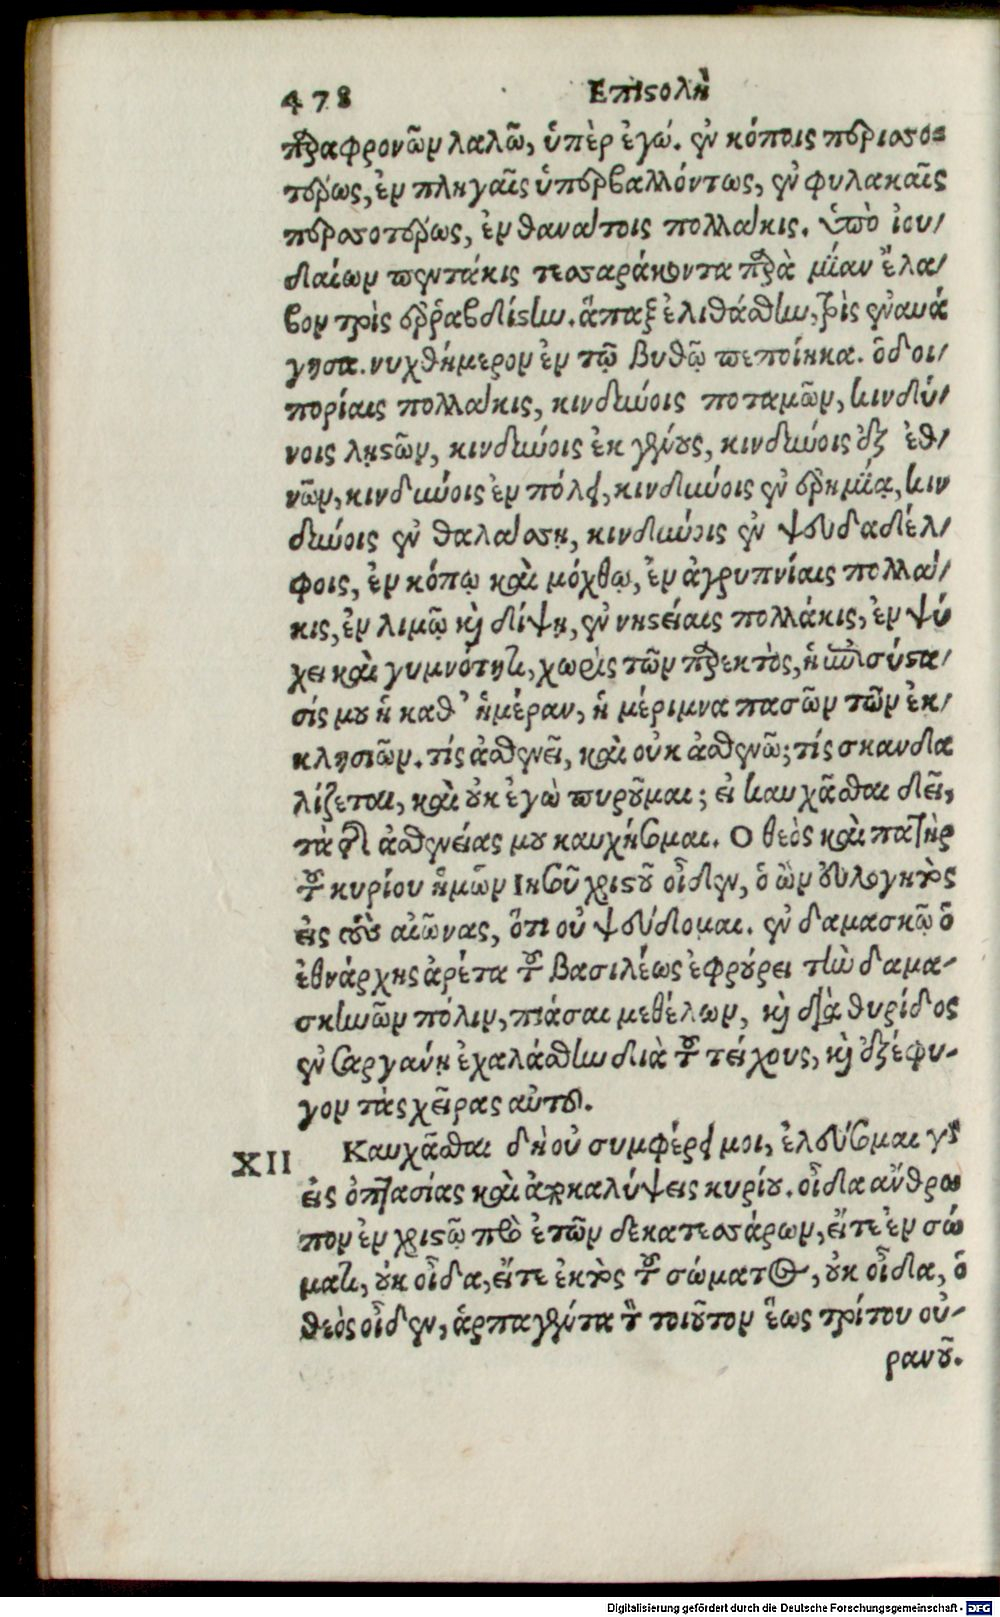 478 Επιστολὴ
παραφρονῶν λαλῶ, ὑπὲρ ἐγώ. ἐν κόποις περισσο-
τέρως, ἐν πληγαῖς ὑπερβαλλόντως, ἐν φυλακαῖς
περσσοτέρως, ἐν θανάτοις πολλάκις. ὑπὸ ἰου/
δαίων πεντάκις τεσσαράκοντα παρὰ μίαν ἔλα/
βον τρὶς ἐῤῥαβδίσθην. ἅπαξ ἐλιθάσθην, τρὶς ἐναυά
γησα. νυχθήμερον ἐν τῷ βυθῷ πεποίηκα. ὁδοι/
πορίαις πολλάκις, κινδύνοις ποταμῶν, κινδύ/
νοις λῃστῶν, κινδύνοις ἐκ γένους, κινδύνοις ἐξ ἐθ/
νῶν, κινδύνοις ἐν πόλει, κινδύνοις ἐν ἐρημίᾳ, κιν
δύνοις ἐν θαλάσσῃ, κινδύνοις ἐν ψευδαδέλ/
φοις, ἐν κόπῳ καὶ μόχθῳ, ἐν ἀγρυπνίαις πολλά/
κις, ἐν λιμῷ καὶ δίψῃ, ἐν νηστείαις πολλάκις, ἐν ψύ
χει καὶ γυμνότητι, χωρὶς τῶν παρεκτὸς, ἡ ἐπισύστα/
σίς μου ἡ καθ' ἡμέραν, ἡ μέριμνα πασῶν τῶν ἐκ/
κλησιῶν. τίς ἀσθενεῖ, καὶ οὐκ ἀσθενῶ; τίς σκανδα
λίζεται, καὶ οὐκ ἐγὼ πυροῦμαι; εἰ καυχᾶσθαι δεῖ,
τὰ τῆς ἀσθενείας μου καυχήσομαι. Ο θεὸς καὶ πατὴρ
τοῦ κυρίου ἡμῶν Ιησοῦ χριστοῦ οἶδεν, ὁ ὢν εὐλογητὸς
εἰς τοὺς αἰῶνας, ὅτι οὐ ψεύδομαι. ἐν δαμασκῷ ὁ
ἐθνάρχης ἀρέτα τοῦ βασιλέως ἐφρούρει τὴν δαμα-
σκηνῶν πόλιν, πιάσαι με θέλων, καὶ διὰ θυρίδος
ἐν σαργάνῃ ἐχαλάσθην διὰ τοῦ τείχους, καὶ ἐξέφυ-
γον τὰς χεῖρας αὐτοῦ.
XII Καυχᾶσθαι δὴ οὐ συμφέρει μοι, ἐλεύσομαι γὰρ
εἰς ὀπτασίας καὶ ἀποκαλύψεις κυρίου. οἶδα ἄνθρω
πον ἐν χριστῷ πρὸ ἐτῶν δεκατεσσάρων, εἴτε ἐν σώ
ματι, οὐκ οἶδα, εἴτε ἐκτὸς τοῦ σώματος, οὐκ οἶδα, ὁ
θεὸς οἶδεν, ἁρπαγέντα τὸν τοιοῦτον ἕως τρίτου οὐ-
ρανοῦ.
Digitalisierung gefördert durch die Deutsche Forschungsgemeinschaft - DFG